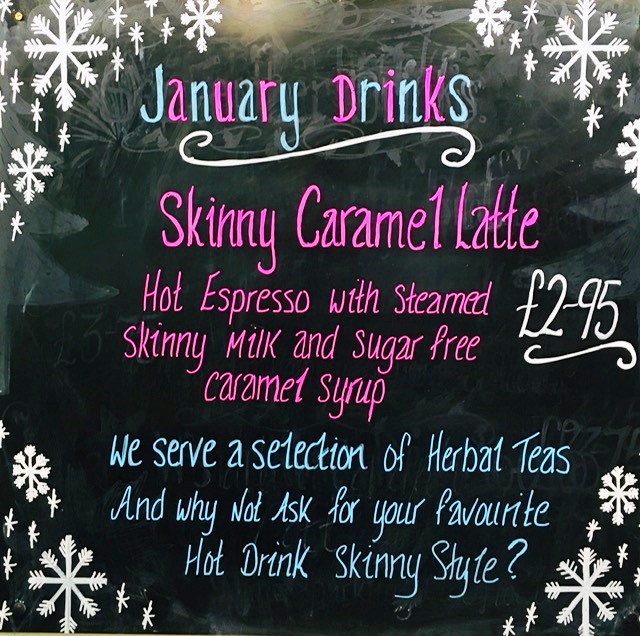 January Drinks
Skinny Caramel Latte
Hot Espresso with Steamed
Skinny Milk and Sugar free
caramel syrup
£2-95
We serve a selection of Herbal Teas
And why Not Ask for your favourite
Hot Drink Skinny Style?